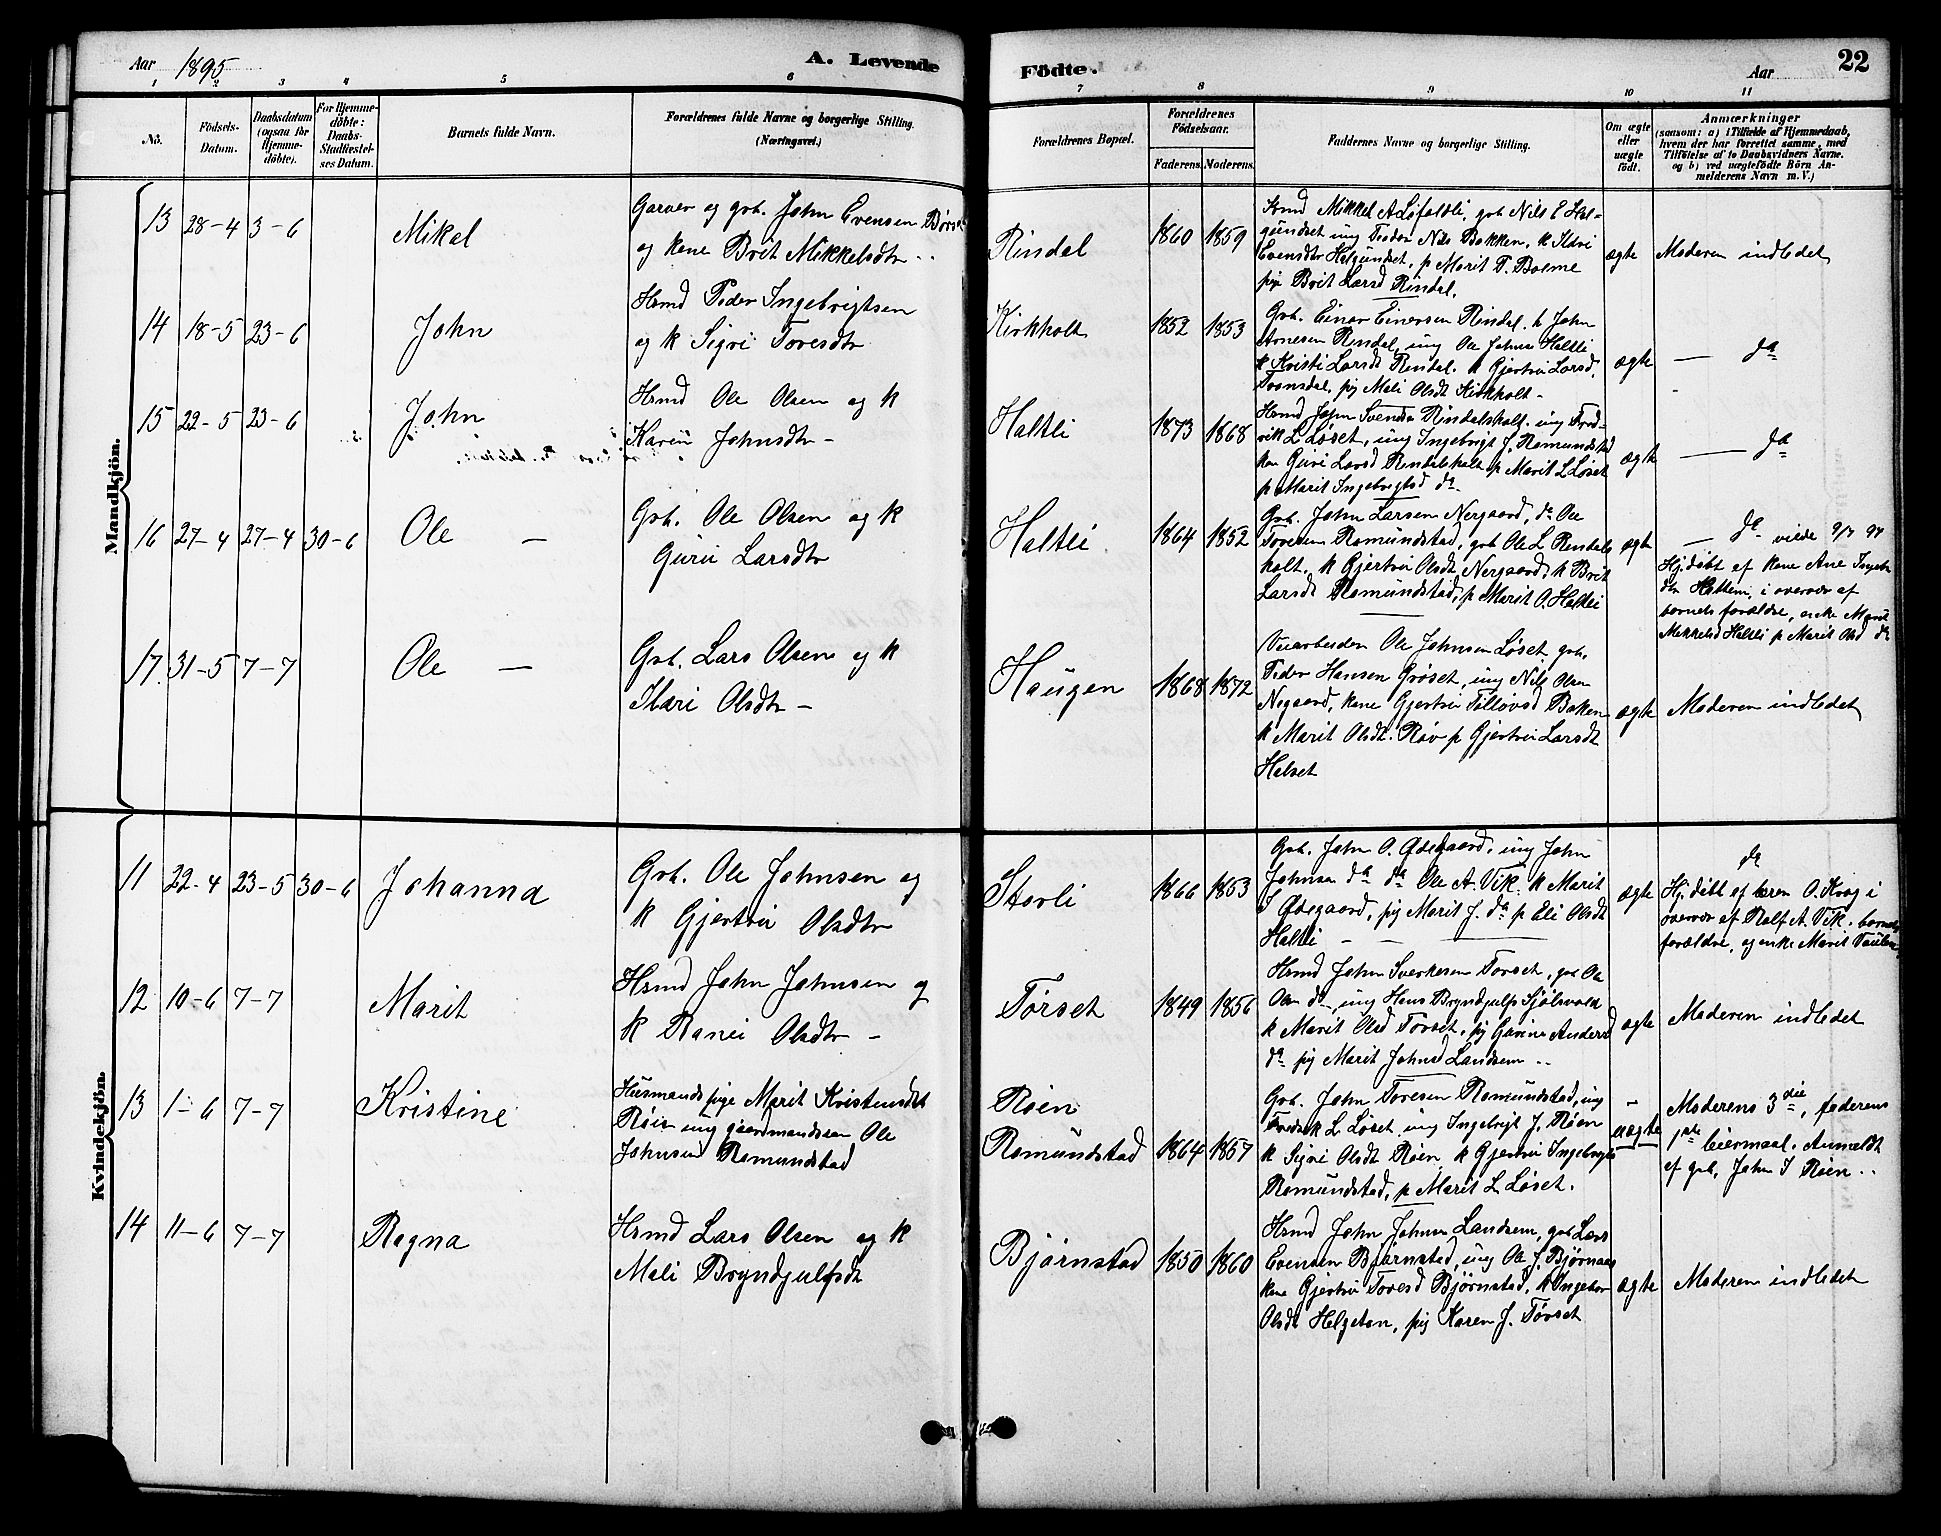 Aar 1895
A. Levende
Födte.
Aar
22
1 2 3 4 5 6 7 8 9 10 11
No.
Födsels-
Datum.
Daabsdatum
(ogsaa for
Hjemme-
döbte).
For Hjemme-
döbte:
Daabs-
Stadfæstel-
ses Datum.
Barnets fulde Navn.
Forældrenes fulde Navne og borgerlige Stilling.
(Næringsvei.)
Forældrenes Bopæl.
Forældrenes
Födselsaar.
Faderens. Moderens.
Faddernes Navne og borgerlige Stilling.
Om ægte
eller
uægte
födt.
Anmærkninger
(saasom: a) i Tilfælde af Hjemmedaab,
hvem der har forrettet samme, med
Tilföielse af to Daabsvidners Navne.
og b) ved uægtefödte Börn An-
melderens Navn m. V.)
Mandkjön.
13 28-4 3-6
Mikal
Garver og grb. John Evensen
og kone Brit Mikkelsdtr
Rindal
1860 1859
Hrmd Mikkel A Løfaldli, grb Nils E Hel-
gundset ung Peder Nils Bakken, k Ildri
Evensdtr Helgundset, p Marit T. Bolme
pig Brit Larsd Rindal.
ægte
Moderen indledet
14 18-5 23-6
John
Hrmd Peder Ingebrigtsen
og k Sigri Toresdtr
Kirkholt
1852 1853
Grb. Einar Einersen Rindal. h John
Arnesen Rindal, ung Ole Johns Haltli
k Kristi Larsdt Rindal. k Gjertru Larsd.
Tronsdal, pig Mali Olsdt Kirkholt -
ægte
— da
15 22-5 23-6
John
Hrmd Ole Olsen og k
Karen Johnsdtr -
Haltli
1873 1868
Hrmd John Svendsen Rindalsholt. ung Fred-
rik L Løset, ung Ingebrigt J. Romundstad
kon Guri Larsd Rindalsholt p Marit L Løset
p Marit Ingebrigtsd da
ægte
— da
16 27-4 27-4 30-6
Ole -
Grb. Ole Olsen og k
Guru Larsdtr
Haltli
1864 1852
Grb. John Larsen Nergaard, da Ole
Toresen Romundstad, grb Ole L Rindals
holt, k Gjertru Olsdt Nergaard, k Brit
Larsdt Romundstad, p Marit O. Haltli
ægte
— da vilde 9/7 97
Hj.døbt af kone Ane Ingebr
dtr Haltem, i overvær af
barnets forældre, enke Marit
Mikkelsd Haltli p Marit Olsd da
17. 31-5 7-7
Ole -
Grb. Lars Olsen og k
Ildri Olsdtr -
Haugen
1868 1872
Veiarbeider Ole Johnsen Løset, grb.
Peder Hansen Grøset, ung Nils Olsen
Negaard, kone Gjertru Tillovsd Baken
k Marit Olsdt. Røv p Gjertru Larsdt
Halset
ægte
Moderen indledet
Kvindekjön.
11 22-4 23-5 30-6
Johanna
Grb. Ole Johnsen og
k Gjertru Olsdtr
Storli
1866 1863
Grb. John O. Ødegaard, ung John
Johnsen da da Ole A. Vik. k Marit
J Ødegaard, pig Marit J. da p Eli Olsdt
Haltli - -
ægte
da
Hj.døbt af læren O. Krog i
overvær af Rolf A. Vik. barnets
forældre, og enke Marit
12 10-6 7-7
Marit
Hrmd John Johnsen og
k Ranei Olsdtr -
Tørset
1849 1856
Hrmd John Sverkesen Torset, grb Ole
Olsen da, ung Hans Bryndjulfs Sjølsvold
k Marit Olsd Torset, pig Gurine Andersd
da pig Marit Johnsd Landsem
ægte
Moderen indledet
13 1-6 7-7
Kristine
Husmandspige Marit Kristensdt
Røen ung gaardmandssøn Ole
Johnsen Romundstad
Røen
Romundstad
1864 1857
Grb. John Toresen Romundstad, ung
Fredrik L Løset, ung Ingebrigt J. Røen
k Sigri Olsdt Røen, k Gjertru Ingebrigts
Romundstad, p Marit L Løset.
-
uægte
Moderens 3die, faderens
1ste leiermaal. Anmeldt
af grb. John I Røen
14 11-6 7-7
Ragna
Hrmd Lars Olsen og k
Mali Bryndjulfsdt
Bjørnstad
1850 1860
Hrmd John Johnsen Landsem, grb Lars
Evensen Bjørnstad, ung Ole J. Bjørnaas
kone Gjertru Toresd Bjørnstad, k Ingebor
Olsdt Helgetun, pig Karen J. Tørset
ægte
Moderen indledet